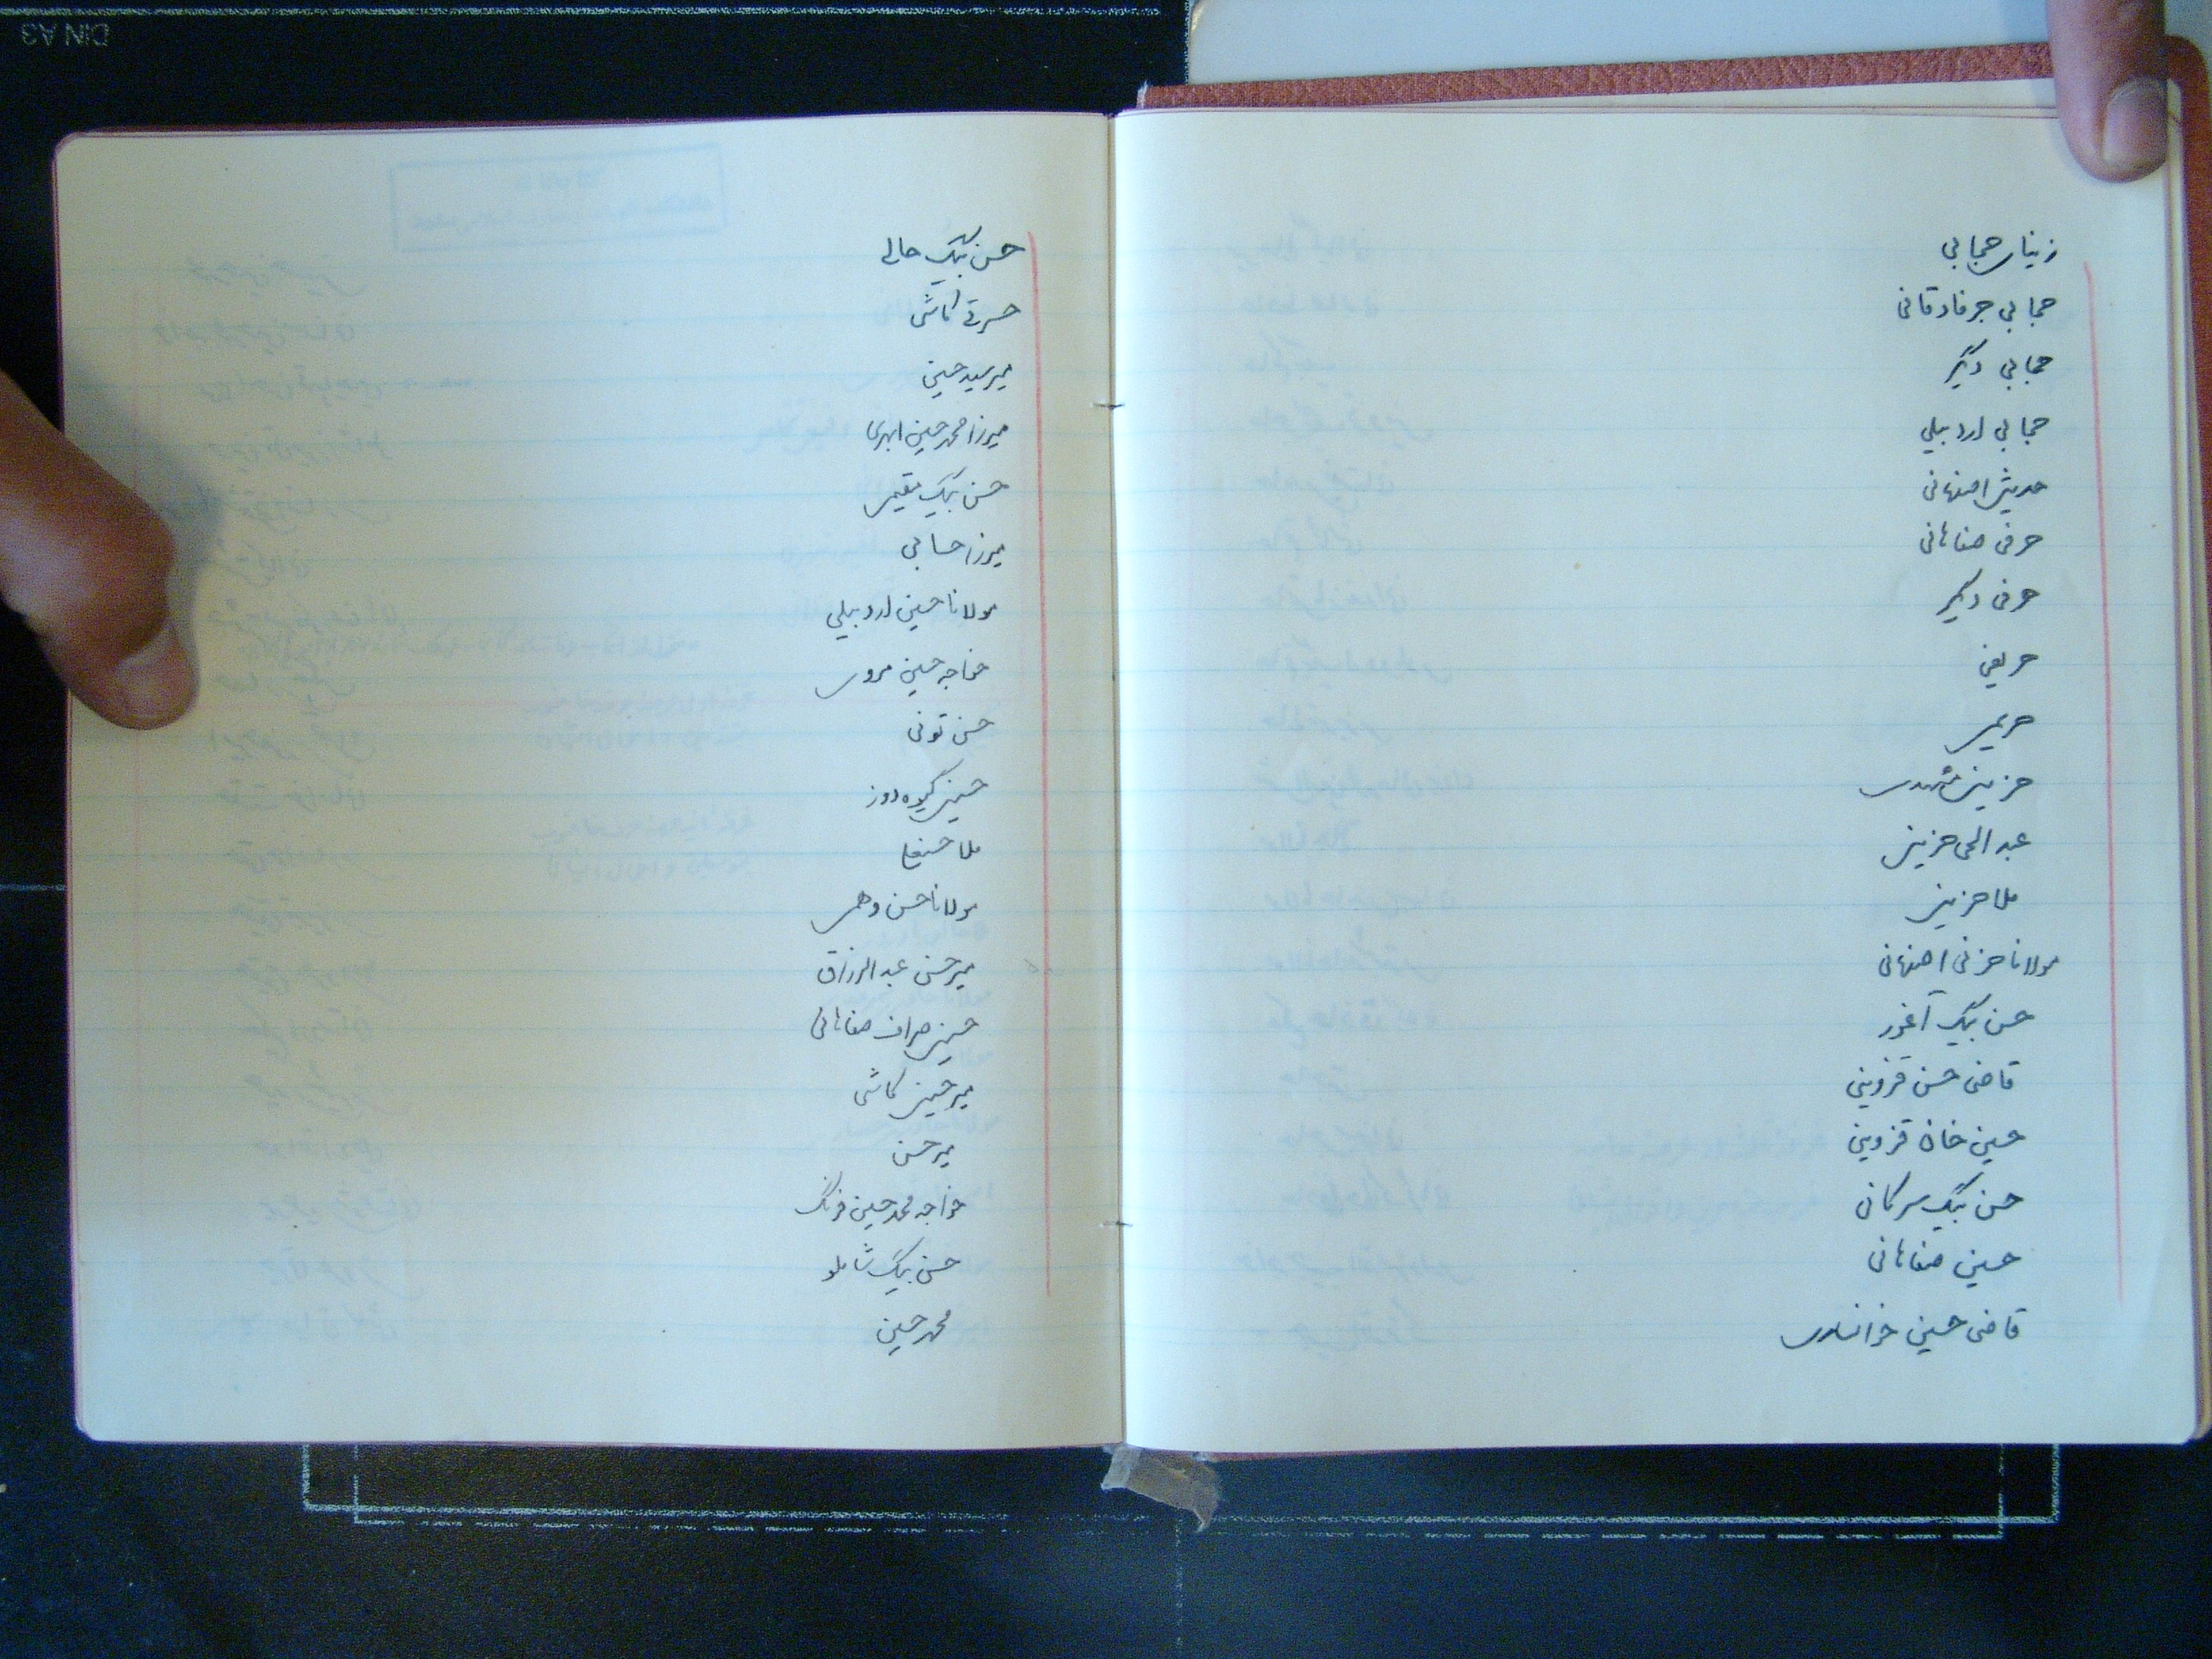 زیناے حجابی
حجابی جرفادقانی
حجابی دیگر
حجابی اردبیلی
حدیثی اصفهانی
حرفی صفاهانی
حرفی دیگر
حریفی
حریمی
حزینی مشهدی
عبد الحی حزینی
ملا حزینی
مولانا حزنی اصفهانی
حسن بیگ آغور
قاضی حسن قزوینی
حسین خان قزوینی
حسن بیگ سرکانی
حسین صفاهانی
قاضی حسین خوانساری
حسن بیگ حالی
حسرتی کاشی
میر سید حسین
میرزا محمد حسین ابهری
حسن بیگ مقیمی
میرزا حسابی
مولانا حسین اردبیلی
خواجه حسین مروی
حسن تونی
حسین گیوه دوز
ملا حسنعلی
مولانا حسن وهمی
میر حسن عبد الرزاق
حسین صراف صفاهانی
میر حسین کاشی
میر حسن
خواجه محمد حسین فرنگ
حسن بیگ شاملو
محمد حسین
DIN A3